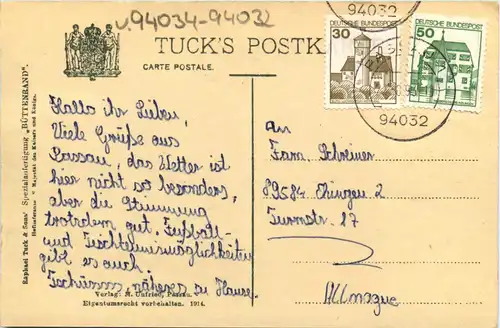 v. 94034-94032
TUCK'S POSTK
CARTE POSTALE.
94032
30
DEUTSCHE BUNDESPOST
50
DEUTSCHE BUNDESPOST
94032
Raphael Tuck & Sons' Spezialanfertigung „BÜTTENRAND".
Hoflieferanten Majestät des Kaisers und Königs.
Hallo ihr Lieben,
Viele Grüße aus
Passau, das Wetter ist
hier nicht so besonders,
aber die Stimmung
trotzdem gut. Fußball-
und Tischtennismöglichkeiten
gibt es auch.
Tschüsss, näheres zu Hause.
An
Fam. Schreiner
89584 Ehingen 2
Turmstr. 27
Allmagne
Verlag: H. Unfried, Passau.
Eigentumsrecht vorbehalten. 1914.